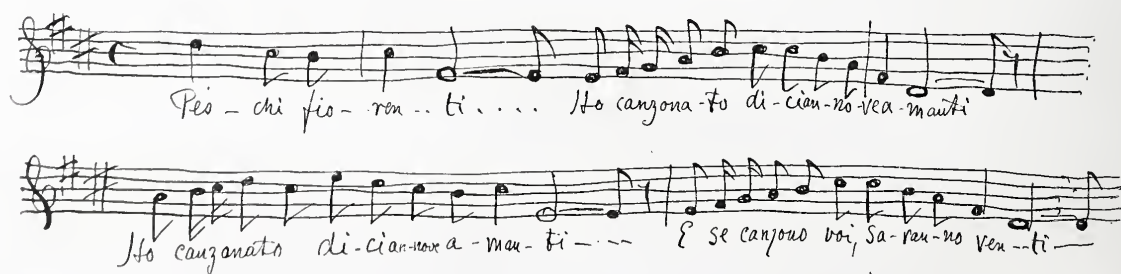 Pes - chi fio - ren -- ti .... Ho canzona - to di - cian - no - ve a - manti
Ho canzonato di - cian - nove a - man - ti - ---
E se canzono voi, Sa - ran - no ven -- ti —